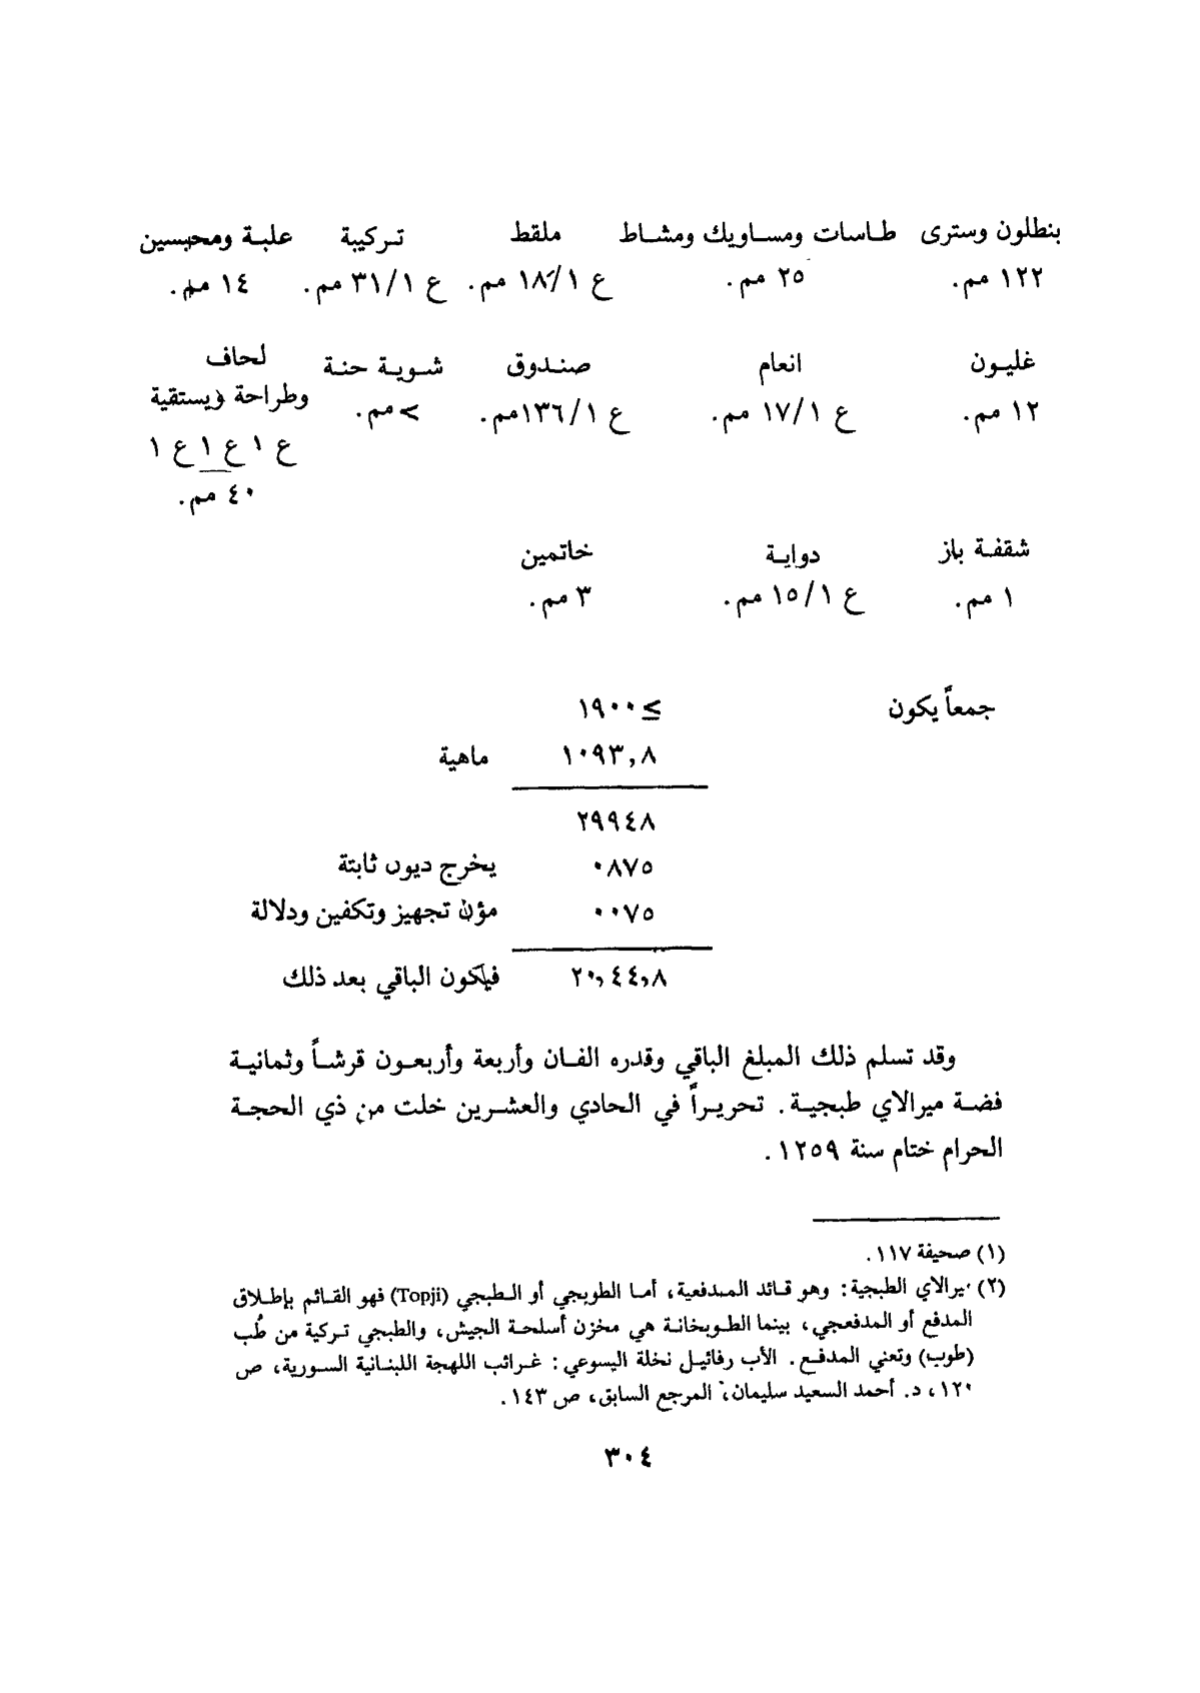 بنطلون وسترى طاسات ومساويك ومشاط ملقط تركيبة علبة ومحبسين
١٢٢ مم. ٢٥ مم. ع ١٨/١ مم. ع ٣١/١ مم. ١٤ مم.
غليون انعام صندوق شوية حنة لحاف وطراحة ويستقية
١٢ مم. ع ١٧/١ مم. ع ١٣٦/١مم. >مم. ع ١ ع ١ ع ١
٤٠ مم.
شقفة باز دواية خاتمين
١ مم. ع ١٥/١ مم. ٣ مم.
جمعاً يكون ≥١٩٠٠
١٠٩٣,٨ ماهية
٢٩٩٤٨
٠٨٧٥ يخرج ديون ثابتة
٠٠٧٥ مؤن تجهيز وتكفين ودلالة
٢٠,٤٤,٨ فيكون الباقي بعد ذلك
وقد تسلم ذلك المبلغ الباقي وقدره الفان وأربعة وأربعون قرشاً وثمانية
فضة ميرالاي طبجية. تحريراً في الحادي والعشرين خلت من ذي الحجة
الحرام ختام سنة ١٢٥٩.
(١) صحيفة ١١٧.
(٢) ميرالاي الطبجية: وهو قائد المدفعية، أما الطوبجي أو الطبجي (Topji) فهو القائم بإطلاق
المدفع أو المدفعجي، بينما الطوبخانة هي مخزن أسلحة الجيش، والطبجي تركية من طُب
(طوب) وتعني المدفع. الأب رفائيل نخلة اليسوعي: غرائب اللهجة اللبنانية السورية، ص
١٢٠، د. أحمد السعيد سليمان، المرجع السابق، ص ١٤٣.
٣٠٤